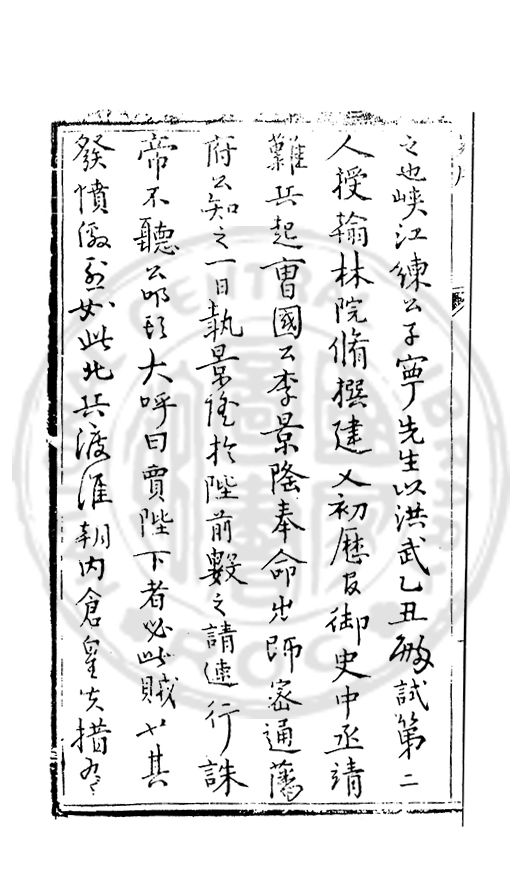 之也峽江練公子寧先生以洪武乙丑殿試第二
人授翰林院脩撰建文初歷官御史中丞靖
難兵起曹國公李景隆奉命出師密通藩
府公知之一日執景隆於陛前數之請速行誅
帝不聽公叩頭大呼曰賣陛下者必此賊也其
發憤激烈如此北兵渡淮朝內倉皇失措有